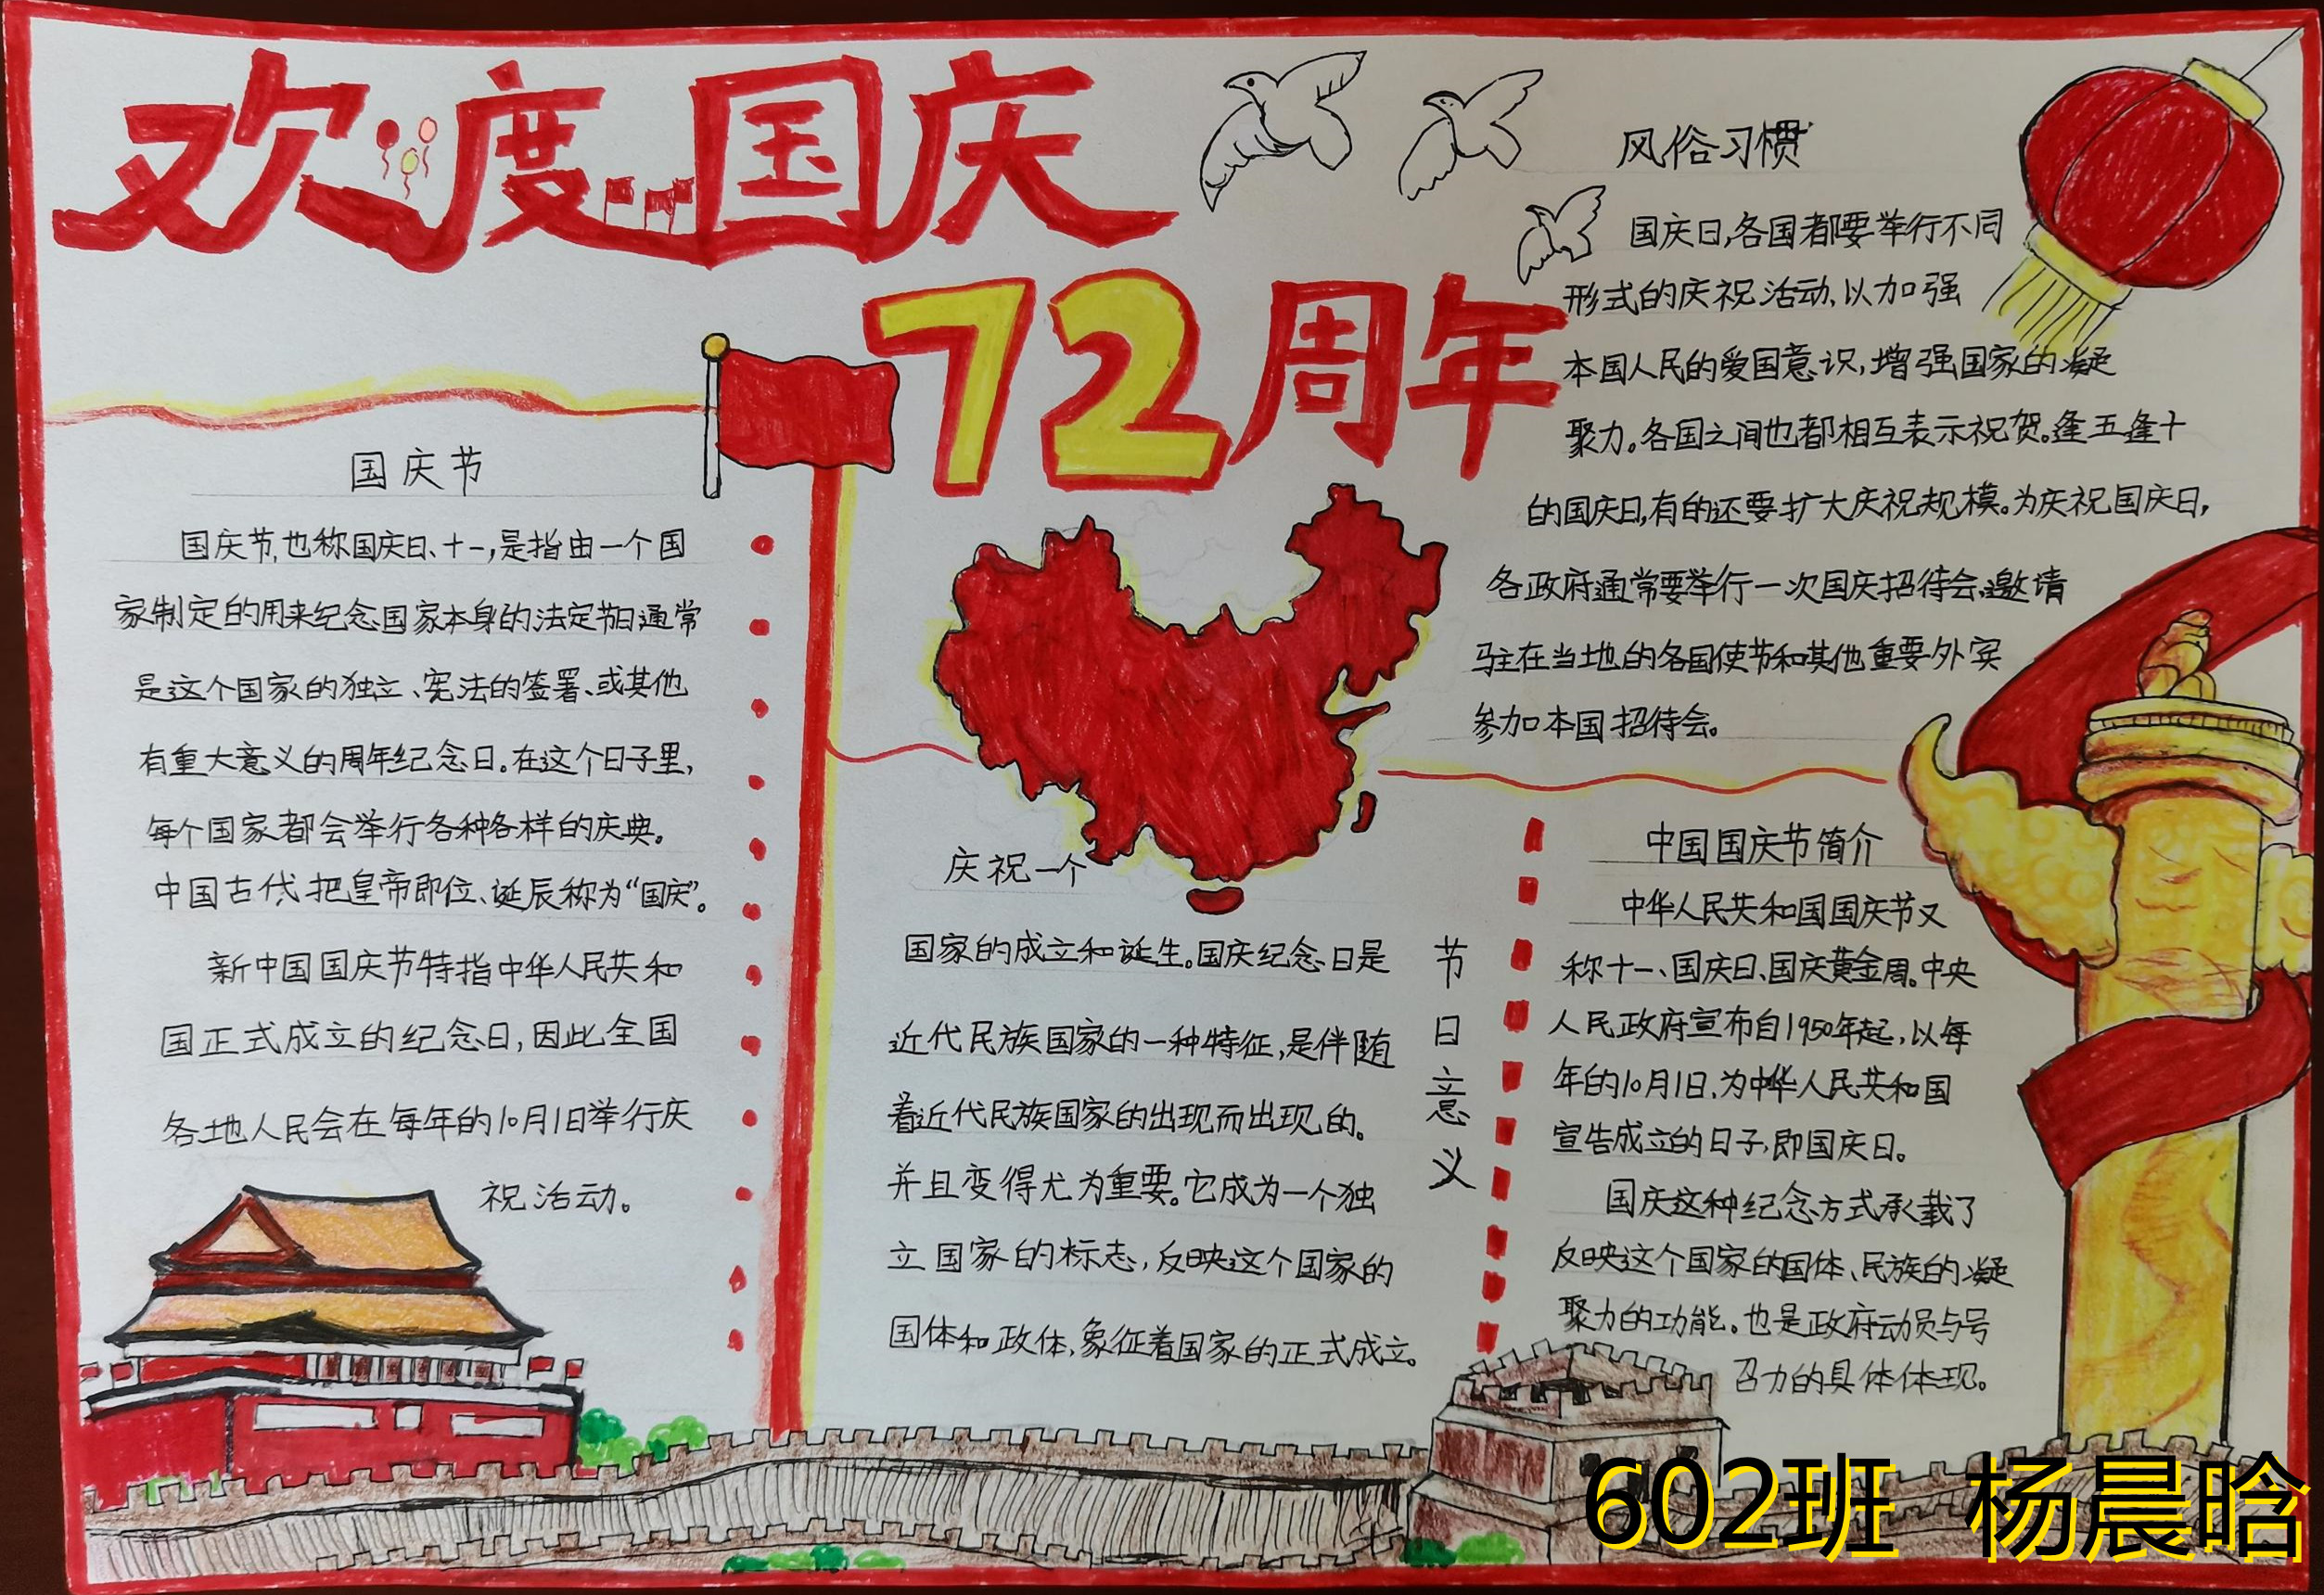 欢度国庆
72周年
国庆节
国庆节,也称国庆日、十一,是指由一个国
家制定的用来纪念国家本身的法定节日通常
是这个国家的独立、宪法的签署、或其他
有重大意义的周年纪念日。在这个日子里,
每个国家都会举行各种各样的庆典。
中国古代把皇帝即位、诞辰称为“国庆”。
新中国国庆节特指中华人民共和
国正式成立的纪念日,因此全国
各地人民会在每年的10月1日举行庆
祝活动。
庆祝一个
国家的成立和诞生。国庆纪念日是
近代民族国家的一种特征,是伴随
着近代民族国家的出现而出现的。
并且变得尤为重要。它成为一个独
立国家的标志,反映这个国家的
国体和政体,象征着国家的正式成立。
节日意义
风俗习惯
国庆日,各国都要举行不同
形式的庆祝活动,以加强
本国人民的爱国意识,增强国家的凝
聚力。各国之间也都相互表示祝贺。逢五逢十
的国庆日,有的还要扩大庆祝规模。为庆祝国庆日,
各政府通常要举行一次国庆招待会,邀请
驻在当地的各国使节和其他重要外宾
参加本国招待会。
中国国庆节简介
中华人民共和国国庆节又
称十一、国庆日、国庆黄金周。中央
人民政府宣布自1950年起,以每
年的10月1日,为中华人民共和国
宣告成立的日子,即国庆日。
国庆这种纪念方式承载了
反映这个国家的国体、民族的凝
聚力的功能。也是政府动员与号
召力的具体体现。
602班 杨晨晗